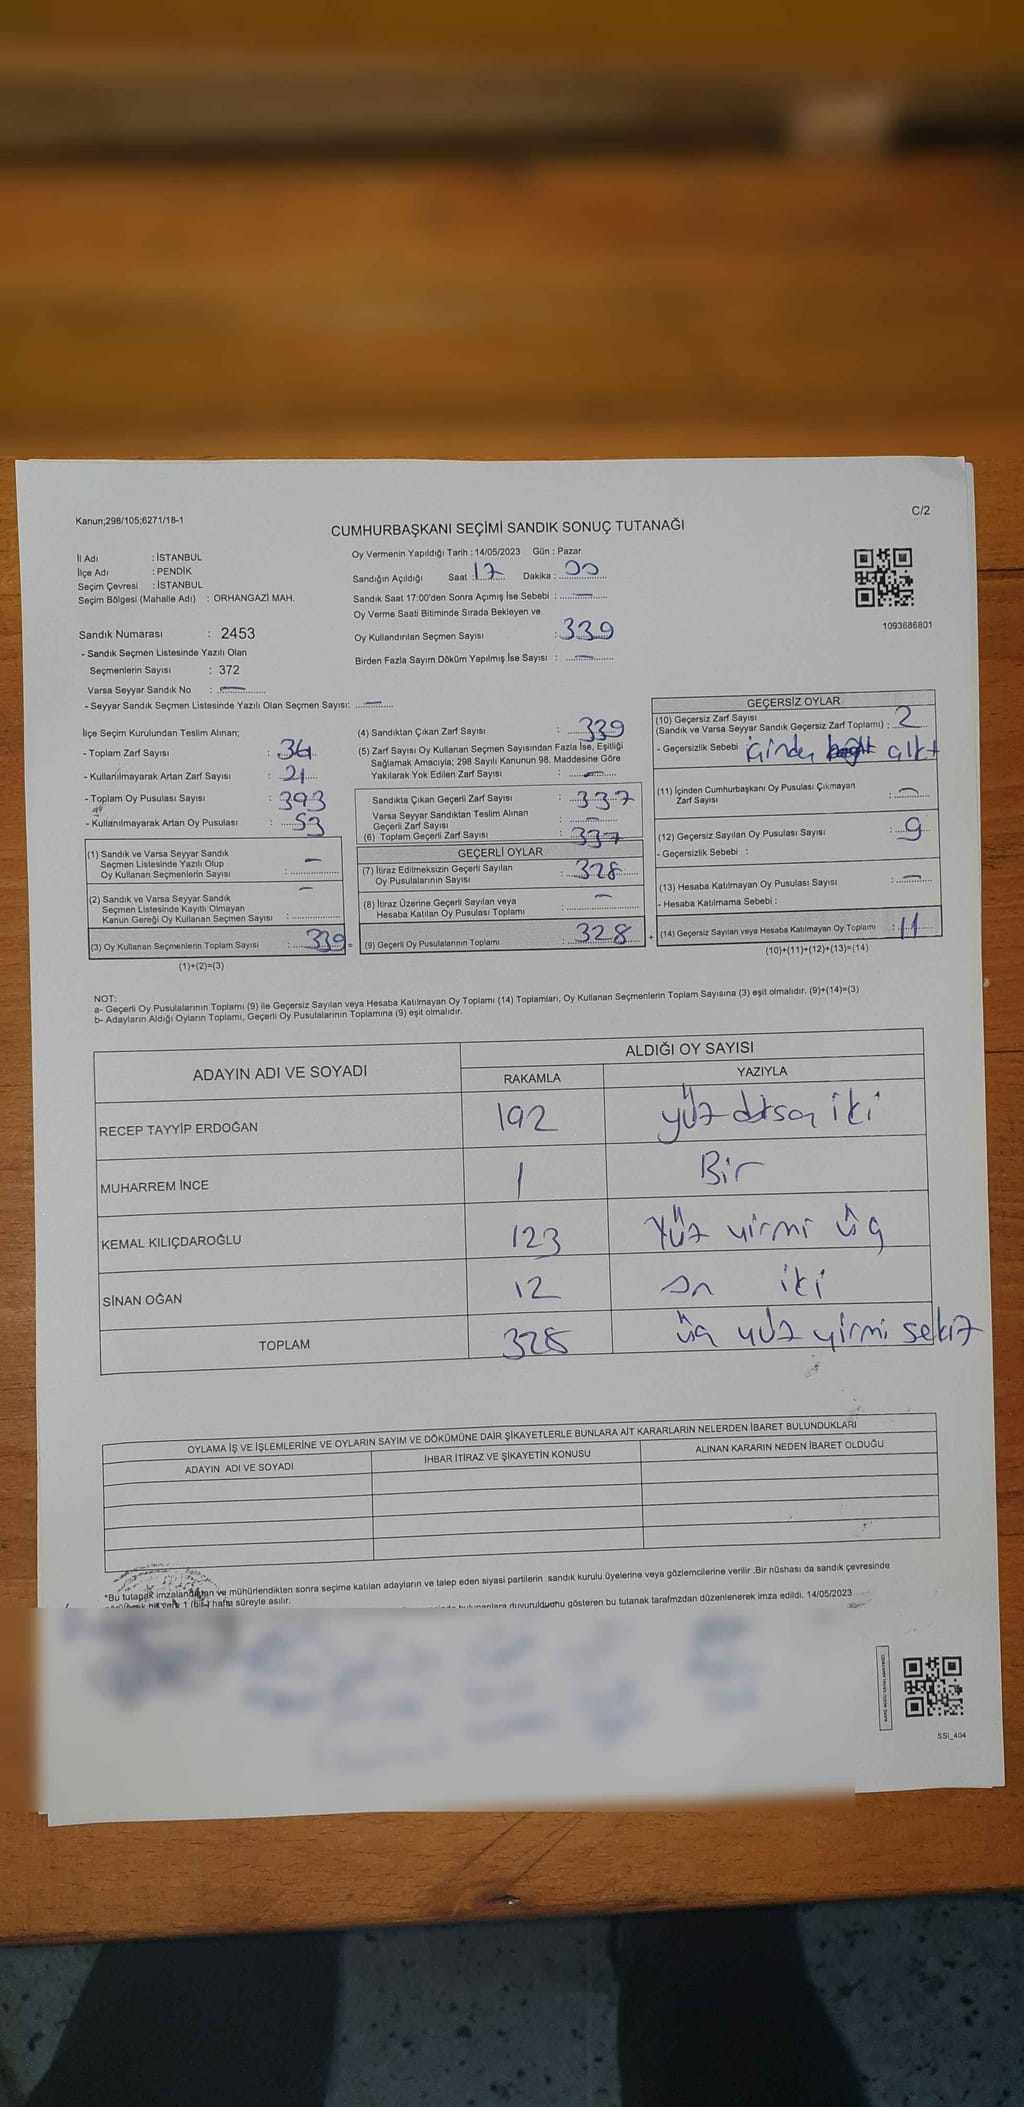 Kanun;298/105;6271/18-1
C/2
CUMHURBAŞKANI SEÇİMİ SANDIK SONUÇ TUTANAĞI
İl Adı : İSTANBUL
İlçe Adı : PENDİK
Seçim Çevresi : İSTANBUL
Seçim Bölgesi (Mahalle Adı) : ORHANGAZİ MAH.
Oy Vermenin Yapıldığı Tarih : 14/05/2023 Gün : Pazar
Sandığın Açıldığı Saat : 17 Dakika : 00
Sandık Saat 17:00'den Sonra Açımış İse Sebebi : —
Oy Verme Saati Bitiminde Sırada Bekleyen ve
Oy Kullandırılan Seçmen Sayısı : 339
Birden Fazla Sayım Döküm Yapılmış İse Sayısı : —
1093686801
Sandık Numarası : 2453
- Sandık Seçmen Listesinde Yazılı Olan
Seçmenlerin Sayısı : 372
Varsa Seyyar Sandık No : —
- Seyyar Sandık Seçmen Listesinde Yazılı Olan Seçmen Sayısı: —
İlçe Seçim Kurulundan Teslim Alınan;
- Toplam Zarf Sayısı :
- Kullanılmayarak Artan Zarf Sayısı : 21
- Toplam Oy Pusulası Sayısı : 393
- Kullanılmayarak Artan Oy Pusulası : 53
(1) Sandık ve Varsa Seyyar Sandık
Seçmen Listesinde Yazılı Olup
Oy Kullanan Seçmenlerin Sayısı : —
(2) Sandık ve Varsa Seyyar Sandık
Seçmen Listesinde Kayıtlı Olmayan
Kanun Gereği Oy Kullanan Seçmen Sayısı : —
(3) Oy Kullanan Seçmenlerin Toplam Sayısı : 339 =
(1)+(2)=(3)
(4) Sandıktan Çıkan Zarf Sayısı : 339
(5) Zarf Sayısı Oy Kullanan Seçmen Sayısından Fazla İse, Eşitliği
Sağlamak Amacıyla; 298 Sayılı Kanunun 98. Maddesine Göre
Yakılarak Yok Edilen Zarf Sayısı : —
Sandıkta Çıkan Geçerli Zarf Sayısı : 337
Varsa Seyyar Sandıktan Teslim Alınan
Geçerli Zarf Sayısı : —
(6) Toplam Geçerli Zarf Sayısı : 337
GEÇERLİ OYLAR
(7) İtiraz Edilmeksizin Geçerli Sayılan
Oy Pusulalarının Sayısı : 328
(8) İtiraz Üzerine Geçerli Sayılan veya
Hesaba Katılan Oy Pusulası Toplamı : —
(9) Geçerli Oy Pusulalarının Toplamı : 328 +
GEÇERSİZ OYLAR
(10) Geçersiz Zarf Sayısı
(Sandık ve Varsa Seyyar Sandık Geçersiz Zarf Toplamı) : 2
- Geçersizlik Sebebi içinden çıktı
(11) İçinden Cumhurbaşkanı Oy Pusulası Çıkmayan
Zarf Sayısı : —
(12) Geçersiz Sayılan Oy Pusulası Sayısı : 9
- Geçersizlik Sebebi :
(13) Hesaba Katılmayan Oy Pusulası Sayısı : —
- Hesaba Katılmama Sebebi :
(14) Geçersiz Sayılan veya Hesaba Katılmayan Oy Toplamı : 11
(10)+(11)+(12)+(13)=(14)
NOT:
a- Geçerli Oy Pusulalarının Toplamı (9) ile Geçersiz Sayılan veya Hesaba Katılmayan Oy Toplamı (14) Toplamları, Oy Kullanan Seçmenlerin Toplam Sayısına (3) eşit olmalıdır. (9)+(14)=(3)
b- Adayların Aldığı Oyların Toplamı, Geçerli Oy Pusulalarının Toplamına (9) eşit olmalıdır.
ADAYIN ADI VE SOYADI ALDIĞI OY SAYISI
RAKAMLA YAZIYLA
RECEP TAYYİP ERDOĞAN 192 yüz doksan iki
MUHARREM İNCE 1 Bir
KEMAL KILIÇDAROĞLU 123 Yüz yirmi üç
SİNAN OĞAN 12 on iki
TOPLAM 328 üç yüz yirmi sekiz
OYLAMA İŞ VE İŞLEMLERİNE VE OYLARIN SAYIM VE DÖKÜMÜNE DAİR ŞİKAYETLERLE BUNLARA AİT KARARLARIN NELERDEN İBARET BULUNDUKLARI
ADAYIN ADI VE SOYADI İHBAR İTİRAZ VE ŞİKAYETİN KONUSU ALINAN KARARIN NEDEN İBARET OLDUĞU
*Bu tutanak imzalandıktan ve mühürlendikten sonra seçime katılan adayların ve talep eden siyasi partilerin sandık kurulu üyelerine veya gözlemcilerine verilir .Bir nüshası da sandık çevresinde
1 (bir) hafta süreyle asılır.
bulunanlara duyurulduğunu gösteren bu tutanak tarafımızdan düzenlenerek imza edildi. 14/05/2023
SSI_404